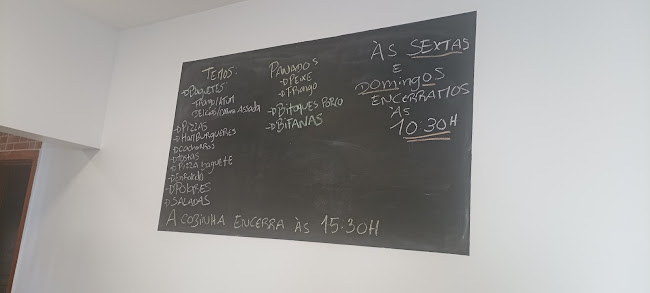 TEMOS:
→ BAGUETES
FRANGO/ATUM
DELICIAS/CARNE ASSADA
→ PIZZAS
→ HAMBURGUERES
→ CACHORROS
→ TOSTAS
→ PIZZA baguete
→ SALADAS
PANADOS
→ PEIXE
→ FRANGO
→ BITOQUES PORCO
→ BIFANAS
ÀS SEXTAS
E
DOMINGOS
ENCERRAMOS
ÀS
10:30H
A COZINHA ENCERRA ÀS 15:30H